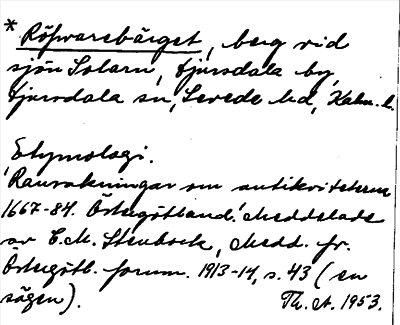 * Röfwarebärget, berg vid
sjön Solaren, Djursdala by,
Djursdala sn, Sevede hd, Kalm. l.
Etymologi.
'Rannsakningar om antikviteterna
1667-84. Östergötland.' Meddelade
av C. M. Stenbock, Medd. fr.
Östergötl. fornm. 1913-14, s. 43 (en
sägen). Th. A. 1953.